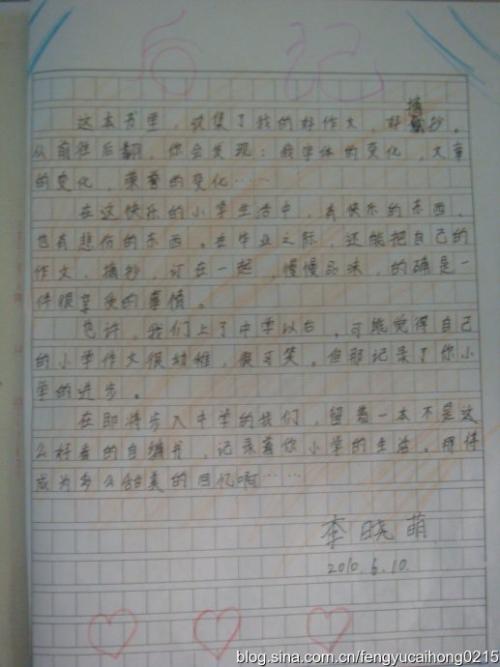 后记
这本书里，收集了我的好作文，好摘抄。
从前往后翻，你会发现：我字体的变化，文章
的变化，荣誉的变化……
在这快乐的小学生活中，有快乐的东西，
也有悲伤的东西。在毕业之际，还能把自己的
作文，摘抄，订在一起，慢慢品味，的确是一
件很享受的事情。
也许，我们上了中学以后，可能觉得自己
的小学作文很幼稚，很可笑。但那记录了你小
学的进步。
在即将步入中学的我们，留着一本不是这
么好看的自编书，记录着你小学的生活。将得
成为多么甜美的回忆啊……
李晓萌
2010.6.10.
blog.sina.com.cn/fengyucaihong0215